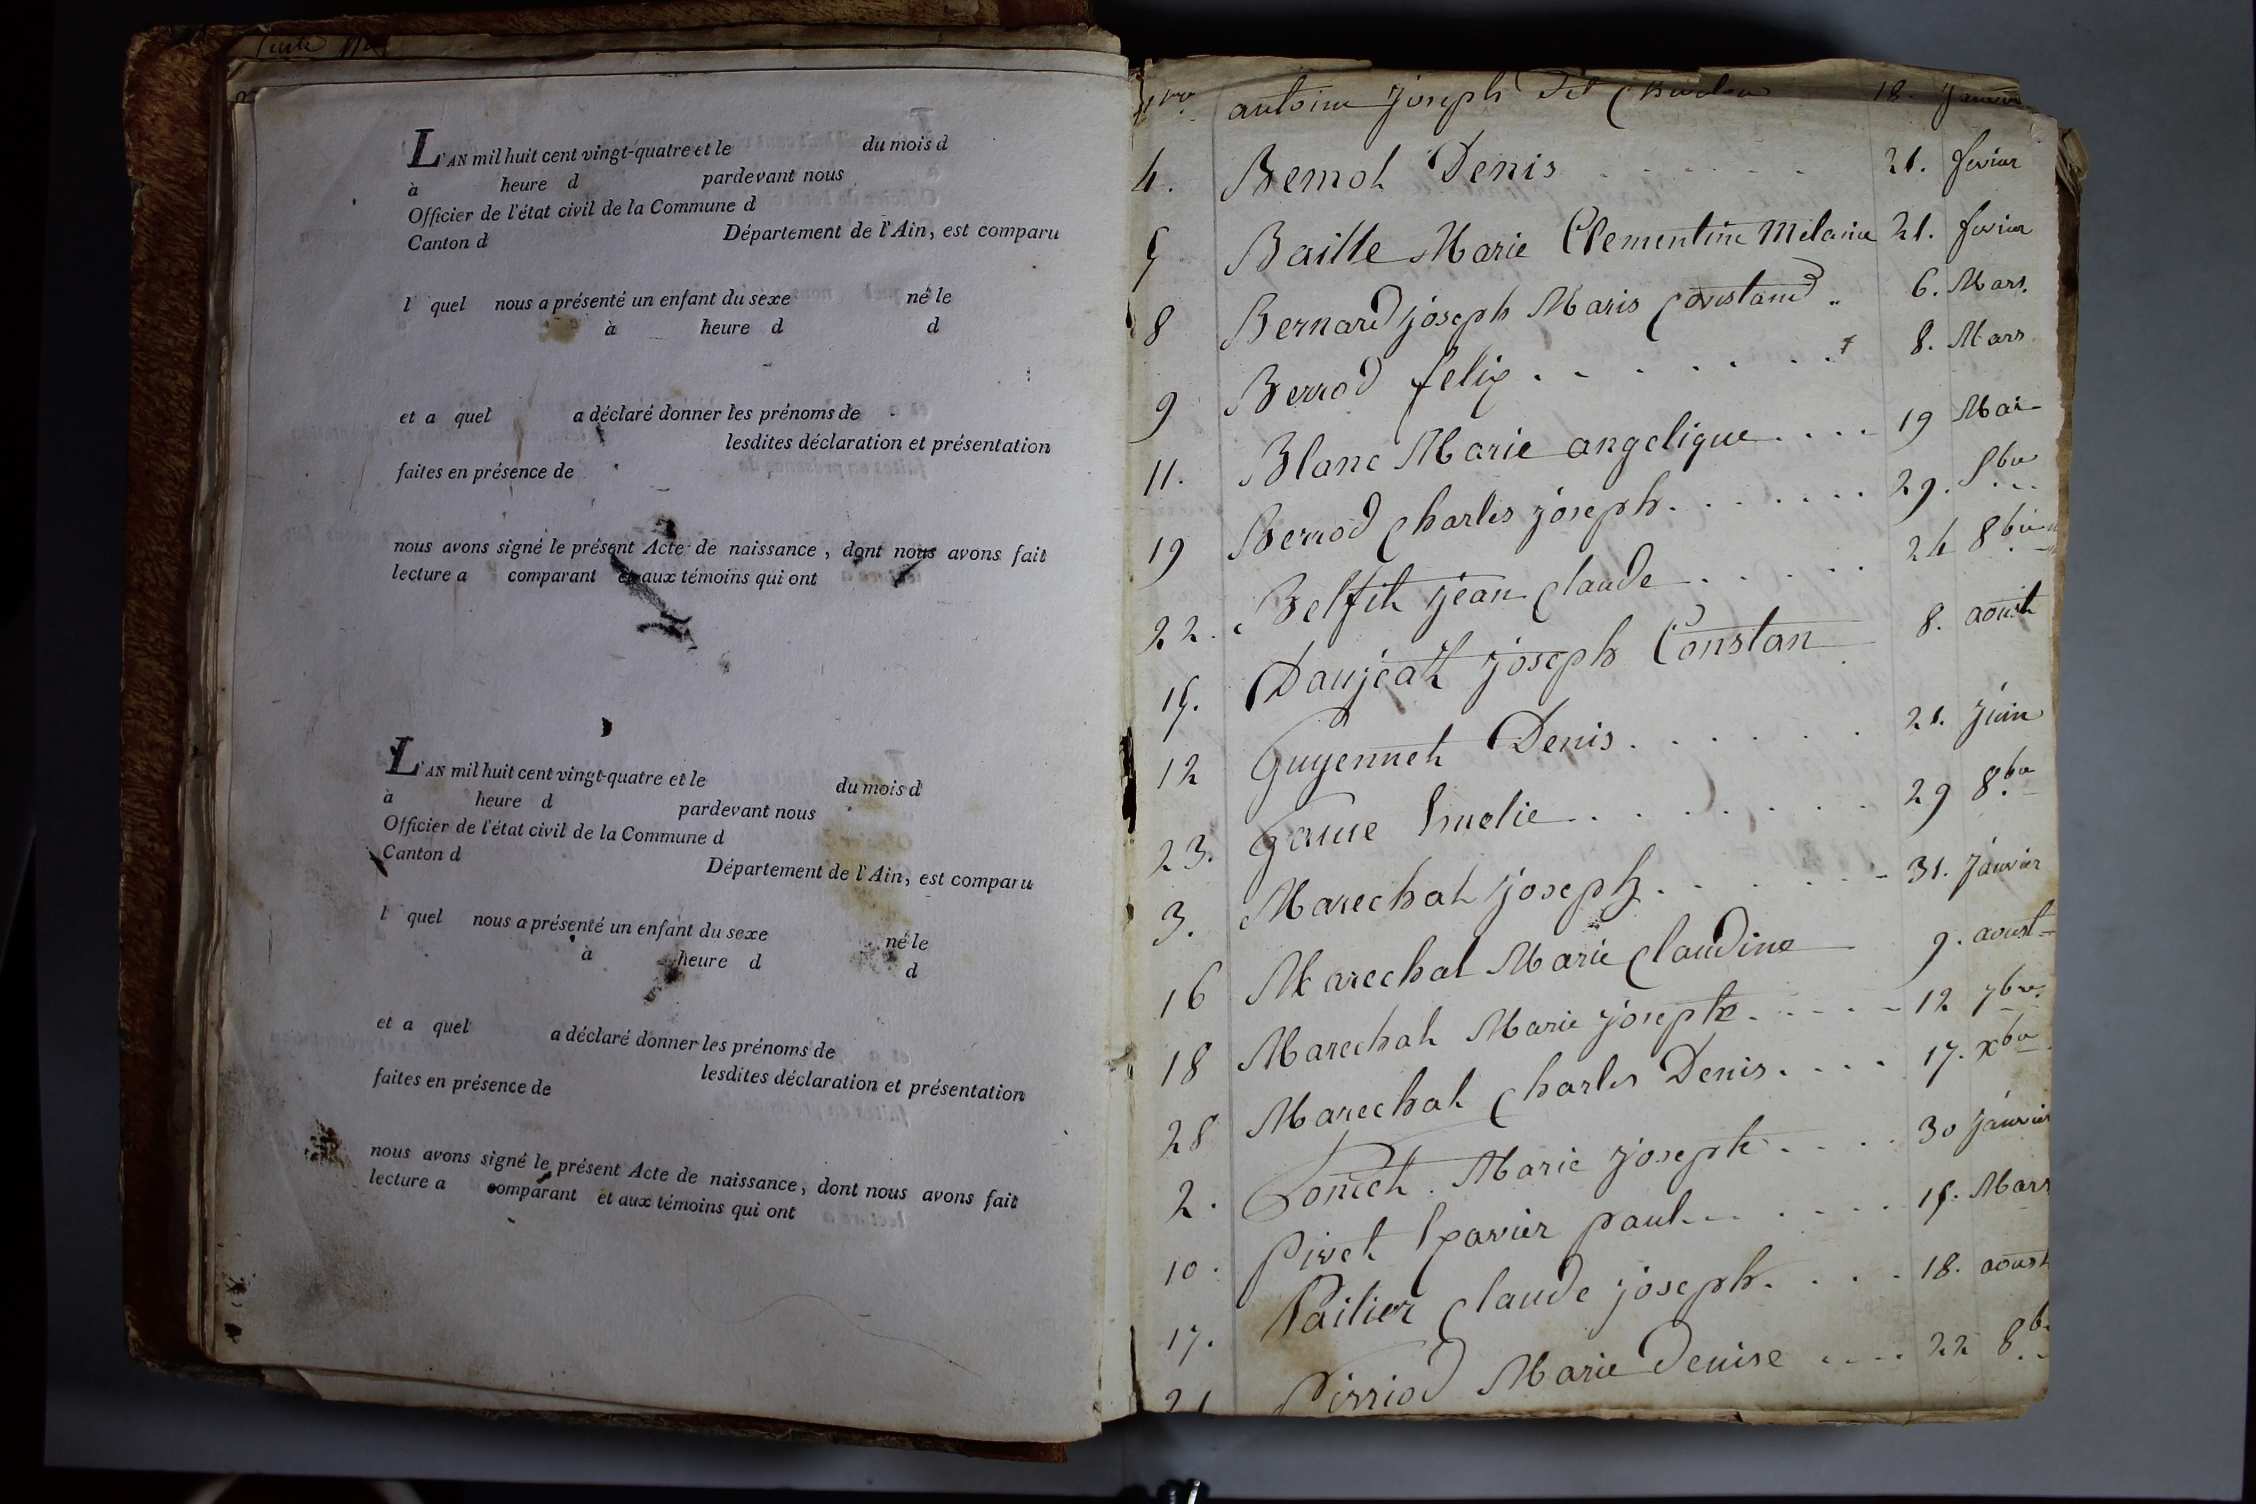 L'AN mil huit cent vingt-quatre et le du mois d
à heure d pardevant nous
Officier de l'état civil de la Commune d
Canton d Département de l'Ain, est comparu
l quel nous a présenté un enfant du sexe né le
à heure d d
et a quel a déclaré donner les prénoms de
lesdites déclaration et présentation
faites en présence de
nous avons signé le présent Acte de naissance, dont nous avons fait
lecture a comparant et aux témoins qui ont
L'AN mil huit cent vingt-quatre et le du mois d
à heure d pardevant nous
Officier de l'état civil de la Commune d
Canton d Département de l'Ain, est comparu
l quel nous a présenté un enfant du sexe né le
à heure d d
et a quel a déclaré donner les prénoms de
lesdites déclaration et présentation
faites en présence de
nous avons signé le présent Acte de naissance, dont nous avons fait
lecture a comparant et aux témoins qui ont
antoine joseph dit 18. janvier
4. Bemol Denis 21. fevrier
Baille Marie Clementine Melanie 21. fevrier
8 Bernard joseph Maris Constand 6. Mars.
9 Berrod felix 8. Mars
11. Blanc Marie angelique 19 Mai
19 Berrod Charles joseph 29. 8bre
22. Belfit jean Claude 24 8bre
15. Daujeat joseph Constan 8. aoust
12 Guyennet Denis 21. juin
23. 29 8bre
3. Marechal joseph 31. janvier
16 Marechal Marie Claudine 9. aoust
18 Marechal Marie josephe 12 7bre.
28 Marechal Charles Denis 17. Xbre
2. Marie josephe 30 janvier
10. Pivet Xavier paul 15. Mars
17. Pailier Claude joseph 18. aoust
21 Pirriod Marie Denise 22 8b